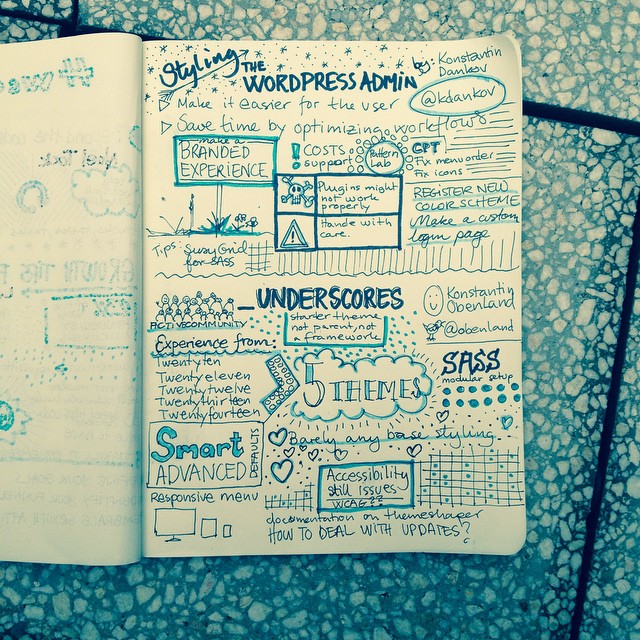 Styling THE
WORDPRESS ADMIN
by: Konstantin
Dankov
@kdankov
Make it easier for the user
Save time by optimizing workflows
make a
BRANDED
EXPERIENCE
! COSTS
support
Pattern
Lab
CPT
Fix menu order
Fix icons
Plugins might
not work
properly
Handle with
care.
REGISTER NEW
COLOR SCHEME
Make a custom
login page
Tips: Susy Grid
for SASS
_UNDERSCORES
Konstantin
Obenland
@obenland
ACTIVE COMMUNITY
starter theme
not parent, not
a framework
Experience from:
Twenty ten
Twenty eleven
Twenty twelve
Twenty thirteen
Twenty fourteen
5 THEMES
SASS
modular setup
Smart
ADVANCED
DEFAULTS
Barely any base styling
Responsive menu
Accessibility
still issues
WCAG
documentation on themeshaper
HOW TO DEAL WITH UPDATES?